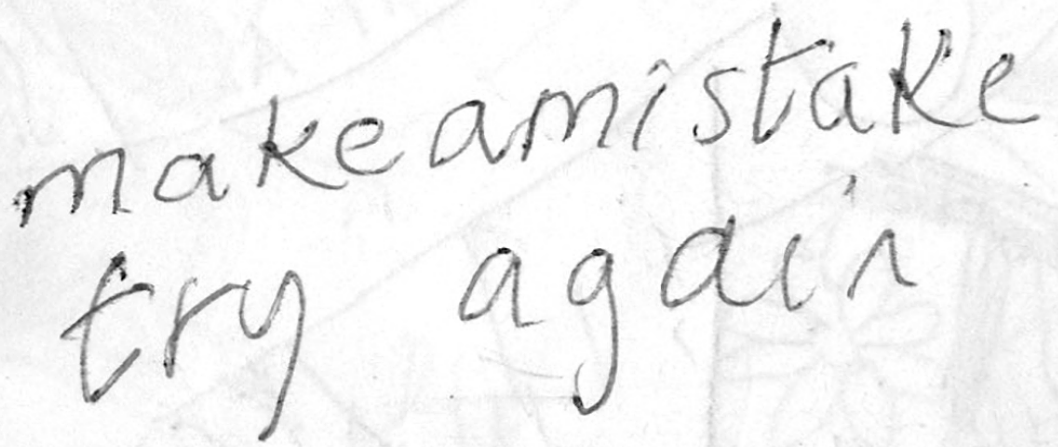 makeamistake
try again